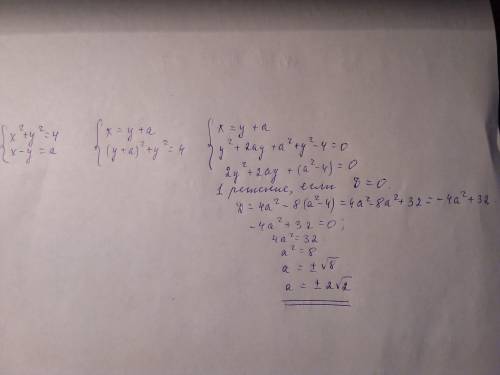 { x²+y²=4
x-y=a
{ x=y+a
(y+a)²+y²=4
{ x=y+a
y²+2ay+a²+y²-4=0
2y²+2ay+(a²-4)=0
1 решение, если D=0.
D=4a²-8(a²-4)=4a²-8a²+32=-4a²+32.
-4a²+32=0;
4a²=32
a²=8
a=±√8
a=±2√2